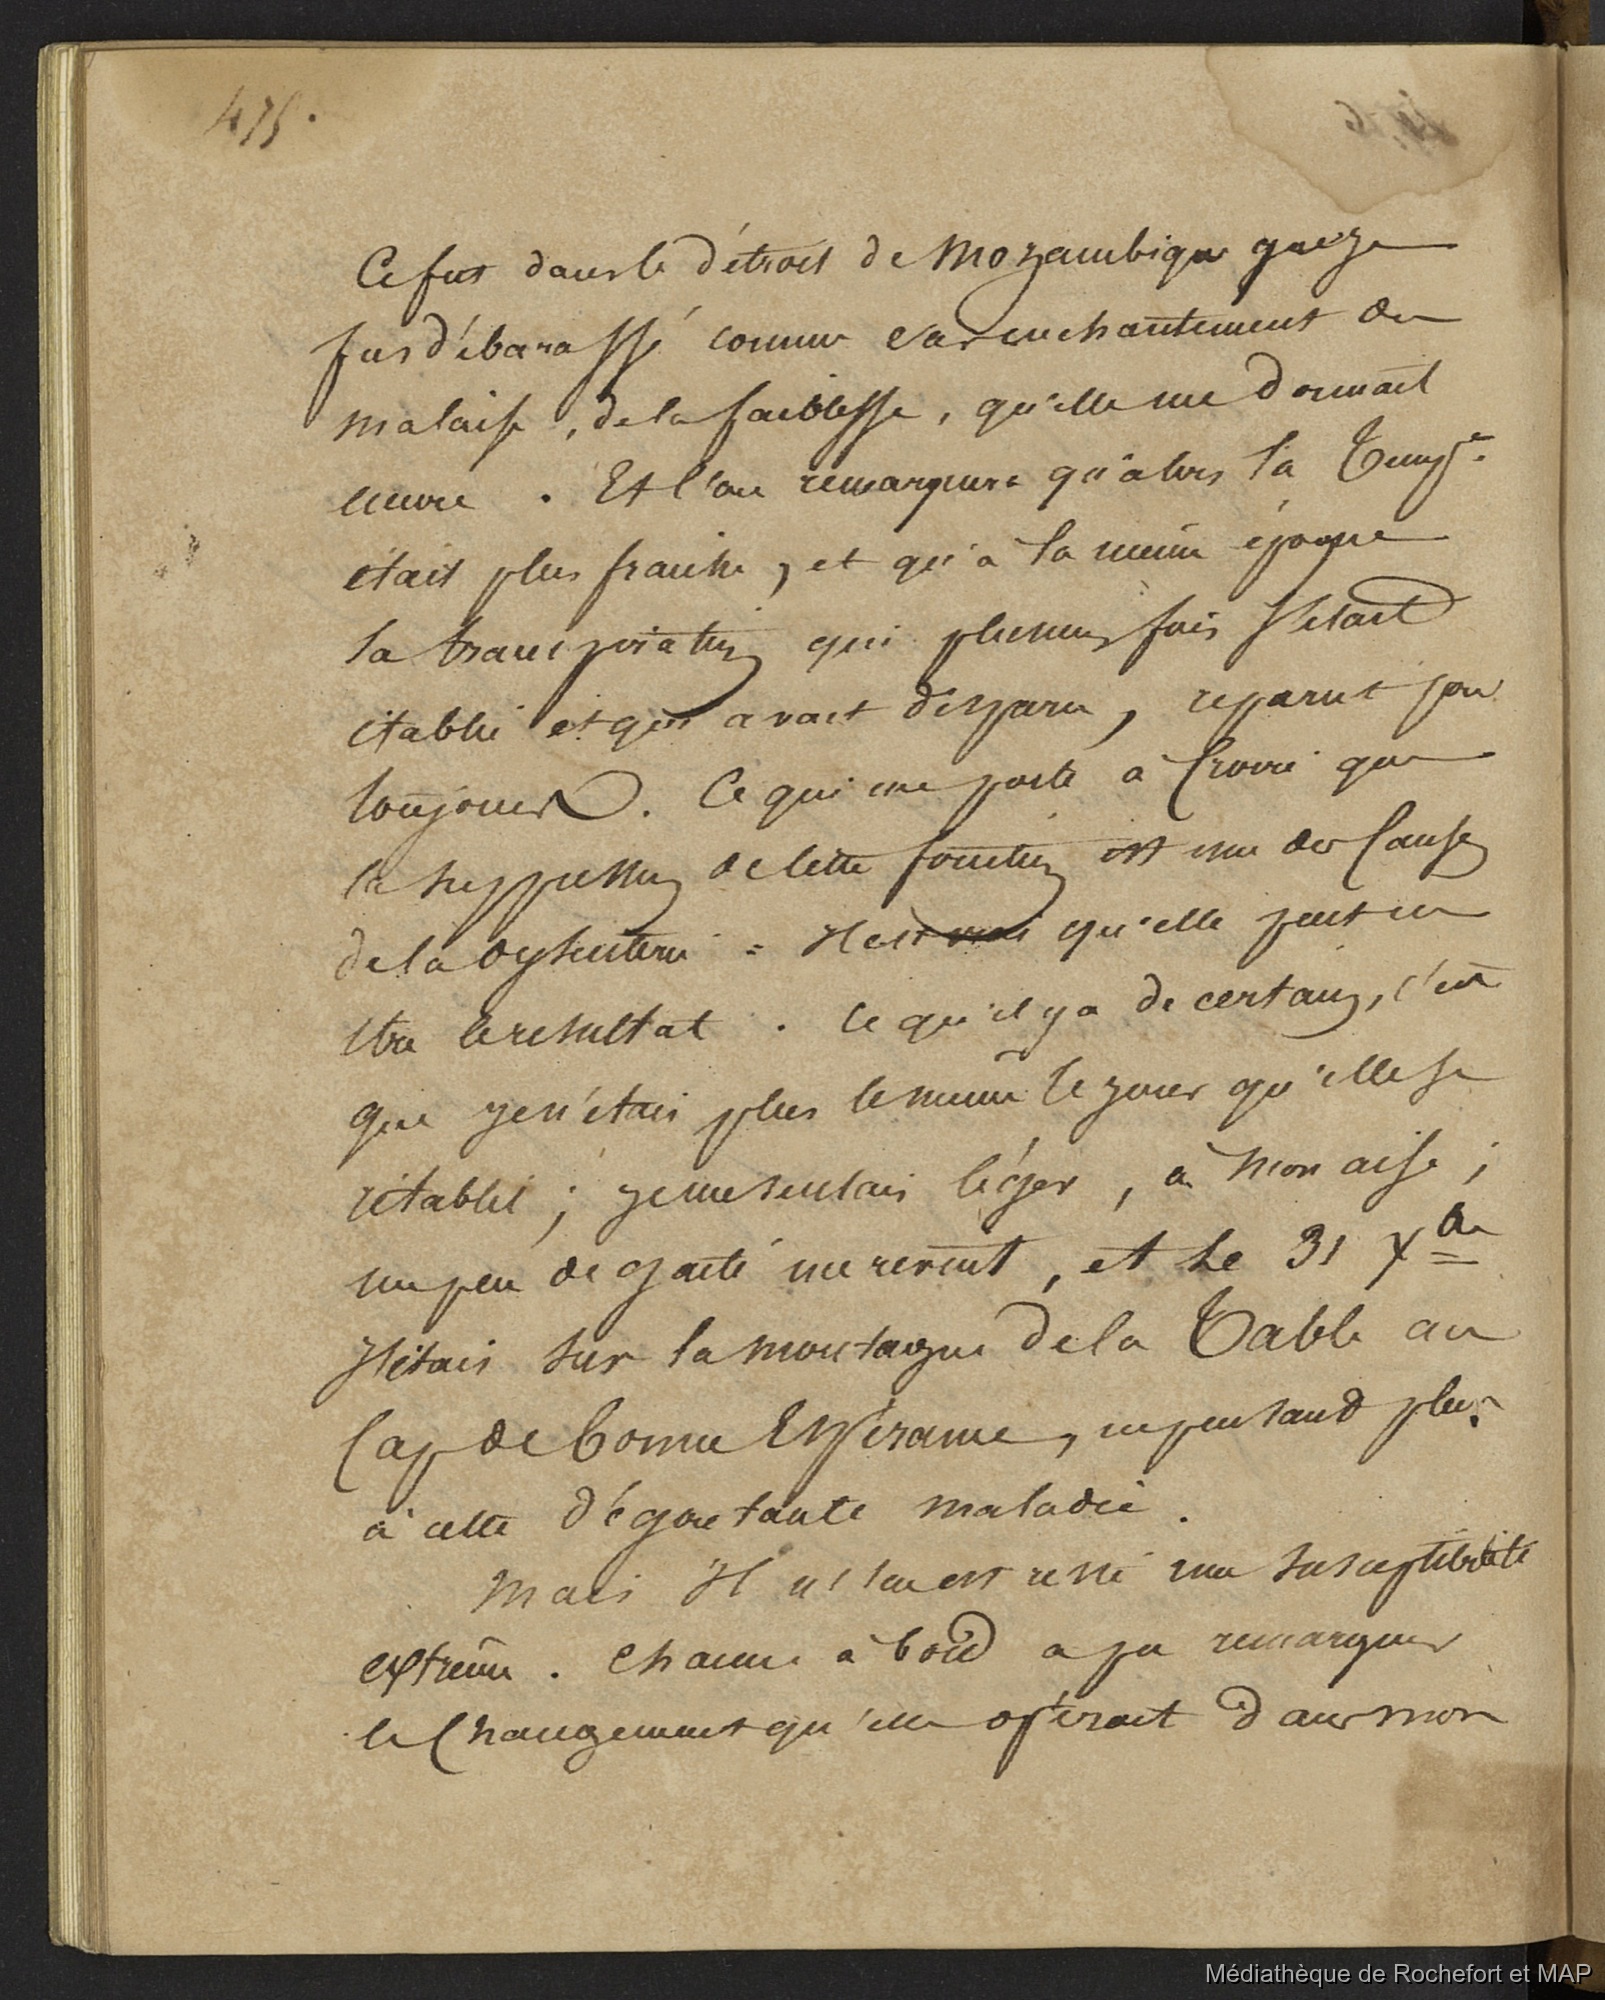 475.
Ce fut dans le détroit de Mozambique que je
fus débarassé comme par enchantement du
malaise, de la faiblesse, qu'elle me donnait
encore. Et l'on remarquera qu'alors la Tempre
était plus fraiche, et qu'à la même époque
la transpiration qui plusieurs fois s'était
établie et qui avait disparu, reparut pour
toujours. Ce qui me porte à croire que
la suppression de cette fonction est une des causes
de la dyssenterie = Il est vrai qu'elle peut en
être le resultat. Ce qu'il y a de certain, c'est
que je n'étais plus le même le jour qu'elle se
rétablit ; je me sentais léger, à mon aise ;
un peu de gaité me revint, et le 31 Xbre
j'étais sur la montagne de la Table au
Cap de bonne Espérance, ne pensant plus
à cette dégoutante maladie.
Mais il m'en est resté une susceptibilité
extrême. Chacun à bord a pu remarquer
le changement qu'elle opérait dans mon
Médiathèque de Rochefort et MAP